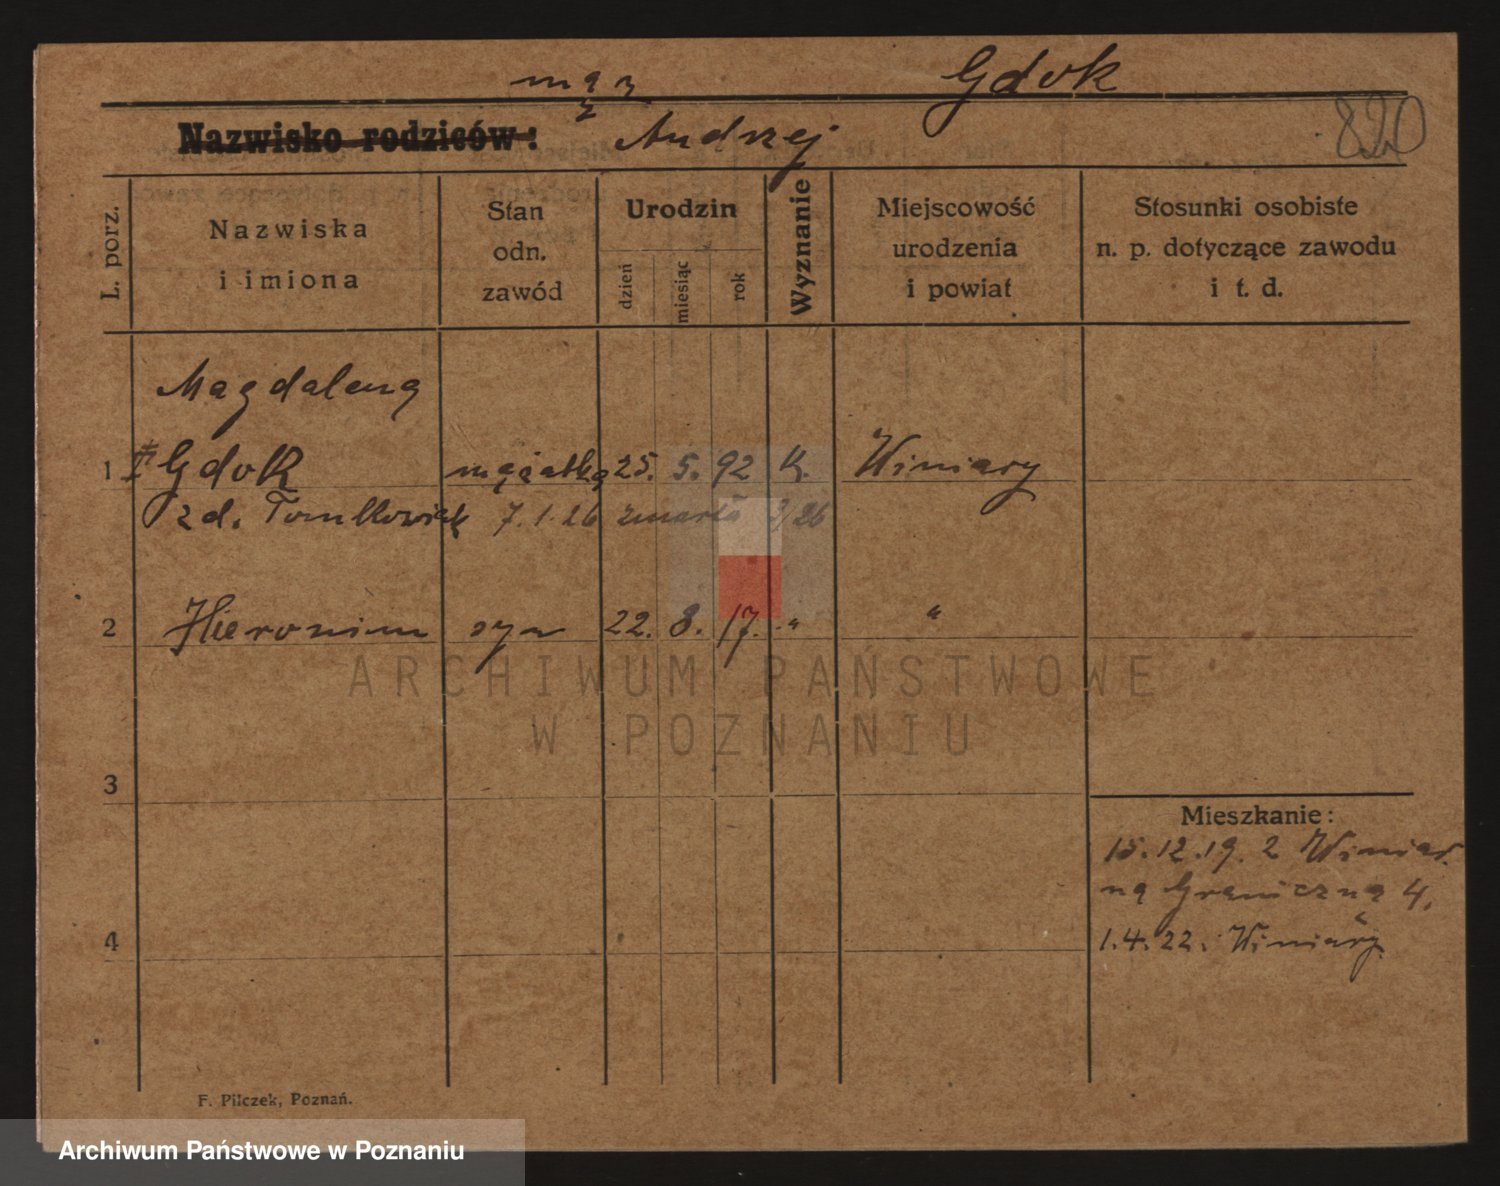 mąż Gdok
Nazwisko rodziców: Andrzej 820
L. porz.
Nazwiska
i imiona
Stan
odn.
zawód
Urodzin
dzień
miesiąc
rok
Wyznanie
Miejscowość
urodzenia
i powiat
Stosunki osobiste
n. p. dotyczące zawodu
i t. d.
Magdalena
1 Gdok mężatka 25. 5. 92 k. Winiary
zd. 7.1.26 zmarła 26
2 Hieronim syn 22. 8. 17. " "
3
4
Mieszkanie:
15.12.19. z Winiar.
na Graniczną 4.
1.4.22. Winiary
F. Pilczek, Poznań.
ARCHIWUM PAŃSTWOWE
W POZNANIU
Archiwum Państwowe w Poznaniu